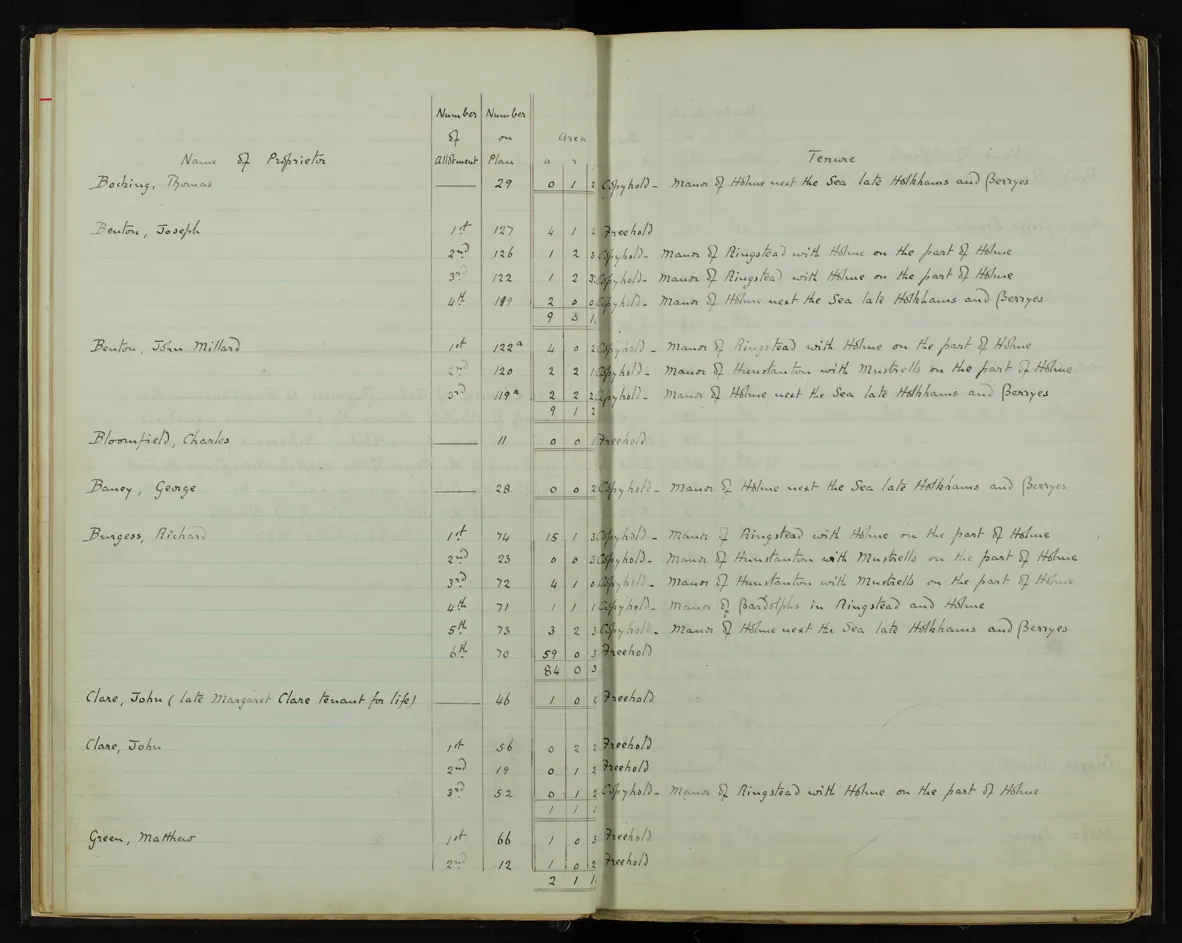 Number Number
of on Area
Name of Proprietor Allotment Plan a r Tenure
Bocking, Thomas — 29 0 1 2 Copyhold - Manor of Holme next the Sea late Holkhams and Berryes
Benton, Joseph 1st 127 4 1 2 Freehold
2nd 126 1 2 3 Copyhold - Manor of Ringstead with Holme on the part of Holme
3rd 122 1 2 3 Copyhold - Manor of Ringstead with Holme on the part of Holme
4th 119 2 0 0 Copyhold - Manor of Holme next the Sea late Holkhams and Berryes
9 3 1
Benton, John Millard 1st 122a 4 0 2 Copyhold - Manor of Ringstead with Holme on the part of Holme
2nd 120 2 2 1 Copyhold - Manor of Hunstanton with Mustrells on the part of Holme
3rd 119a 2 2 2 Copyhold - Manor of Holme next the Sea late Holkhams and Berryes
9 1 2
Bloomfield, Charles — 11 0 0 1 Freehold
Baney, George — 28 0 0 2 Copyhold - Manor of Holme next the Sea late Holkhams and Berryes
Burgess, Richard 1st 74 15 1 3 Copyhold - Manor of Ringstead with Holme on the part of Holme
2nd 23 0 0 3 Copyhold - Manor of Hunstanton with Mustrells on the part of Holme
3rd 72 4 1 0 Copyhold - Manor of Hunstanton with Mustrells on the part of Holme
4th 71 1 1 1 Copyhold - Manor of Bardolphs in Ringstead and Holme
5th 73 3 2 3 Copyhold - Manor of Holme next the Sea late Holkhams and Berryes
6th 70 59 0 3 Freehold
84 0 3
Clare, John (late Margaret Clare tenant for life) — 46 1 0 Freehold
Clare, John 1st 56 0 2 2 Freehold
2nd 19 0 1 2 Freehold
3rd 52 0 1 2 Copyhold - Manor of Ringstead with Holme on the part of Holme
1 1
Green, Matthew 1st 66 1 0 3 Freehold
2nd 12 1 0 2 Freehold
2 1 1